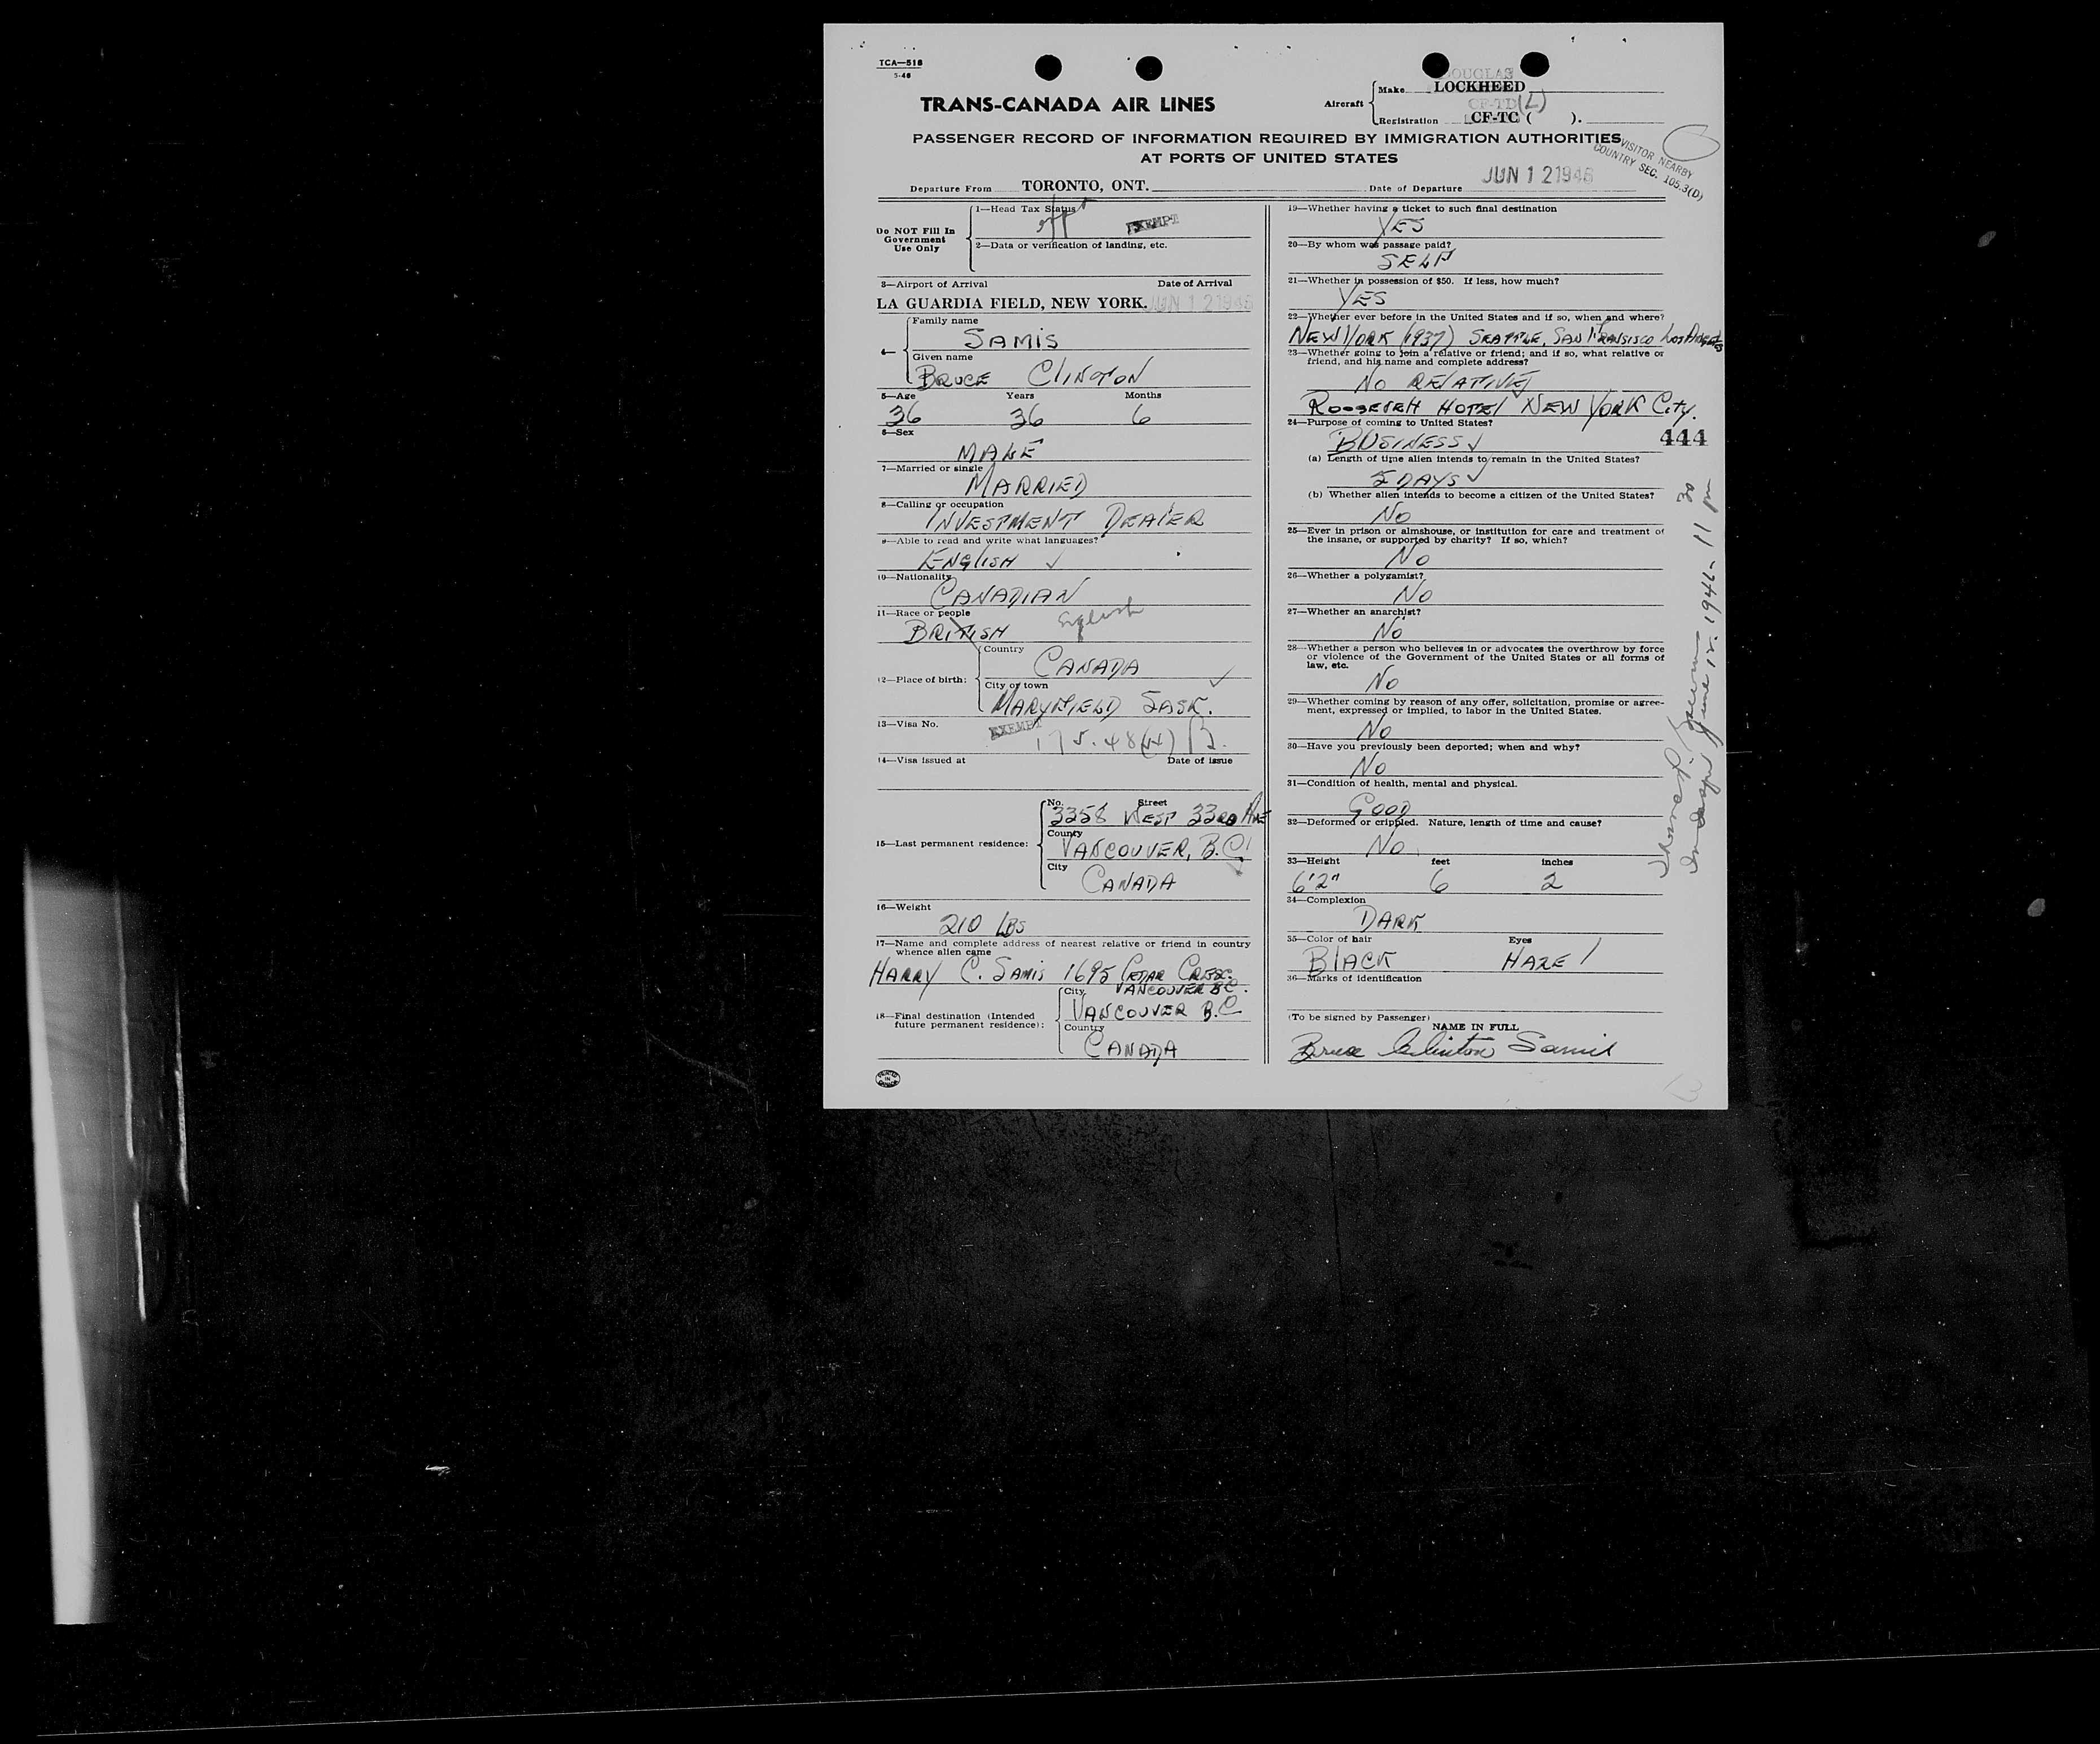 TCA—518
5-46
DOUGLAS
Make LOCKHEED
TRANS-CANADA AIR LINES
Aircraft
CF-TD (L)
Registration CF-TC ( ).
PASSENGER RECORD OF INFORMATION REQUIRED BY IMMIGRATION AUTHORITIES
AT PORTS OF UNITED STATES
VISITOR NEARBY
COUNTRY SEC. 105.3(D)
Departure From TORONTO, ONT. Date of Departure JUN 12 1946
Do NOT Fill In
Government
Use Only
1—Head Tax Status
EXEMPT
2—Data or verification of landing, etc.
3—Airport of Arrival Date of Arrival
LA GUARDIA FIELD, NEW YORK. JUN 12 1946
4—
Family name
SAMIS
Given name
BRUCE CLINTON
5—Age Years Months
36 36 6
6—Sex
MALE
7—Married or single
MARRIED
8—Calling or occupation
INVESTMENT DEALER
9—Able to read and write what languages?
ENGLISH ✓
10—Nationality
CANADIAN
11—Race or people
BRITISH English
12—Place of birth:
Country
CANADA
City or town
MARYFIELD SASK.
13—Visa No.
EXEMPT 175.48
14—Visa issued at Date of issue
15—Last permanent residence:
No. Street
3358 WEST 33RD AVE
County
VANCOUVER, B.C.
City
CANADA
16—Weight
210 LBS
17—Name and complete address of nearest relative or friend in country
whence alien came
HARRY C. SAMIS 1695 CEDAR CRESC.
VANCOUVER BC.
18—Final destination (Intended
future permanent residence):
City
VANCOUVER B.C.
Country
CANADA
PRINTED
IN
CANADA
19—Whether having a ticket to such final destination
YES
20—By whom was passage paid?
SELF
21—Whether in possession of $50. If less, how much?
YES
22—Whether ever before in the United States and if so, when and where?
NEW YORK (1937) SEATTLE, SAN FRANSISCO LOS ANGELES
23—Whether going to join a relative or friend; and if so, what relative or
friend, and his name and complete address?
NO RELATIVE
ROOSEVELT HOTEL NEW YORK CITY.
24—Purpose of coming to United States?
BUSINESS ✓
444
(a) Length of time alien intends to remain in the United States?
5 DAYS ✓
(b) Whether alien intends to become a citizen of the United States?
NO
25—Ever in prison or almshouse, or institution for care and treatment of
the insane, or supported by charity? If so, which?
NO
26—Whether a polygamist?
NO
27—Whether an anarchist?
NO
28—Whether a person who believes in or advocates the overthrow by force
or violence of the Government of the United States or all forms of
law, etc.
NO
29—Whether coming by reason of any offer, solicitation, promise or agree-
ment, expressed or implied, to labor in the United States.
NO
30—Have you previously been deported; when and why?
NO
31—Condition of health, mental and physical.
GOOD
32—Deformed or crippled. Nature, length of time and cause?
NO
33—Height feet inches
6'2" 6 2
34—Complexion
DARK
35—Color of hair Eyes
BLACK HAZEL
36—Marks of identification
(To be signed by Passenger)
NAME IN FULL
Bruce Clinton Samis
Thomas P.
June 12. 1946 - 11 30 pm